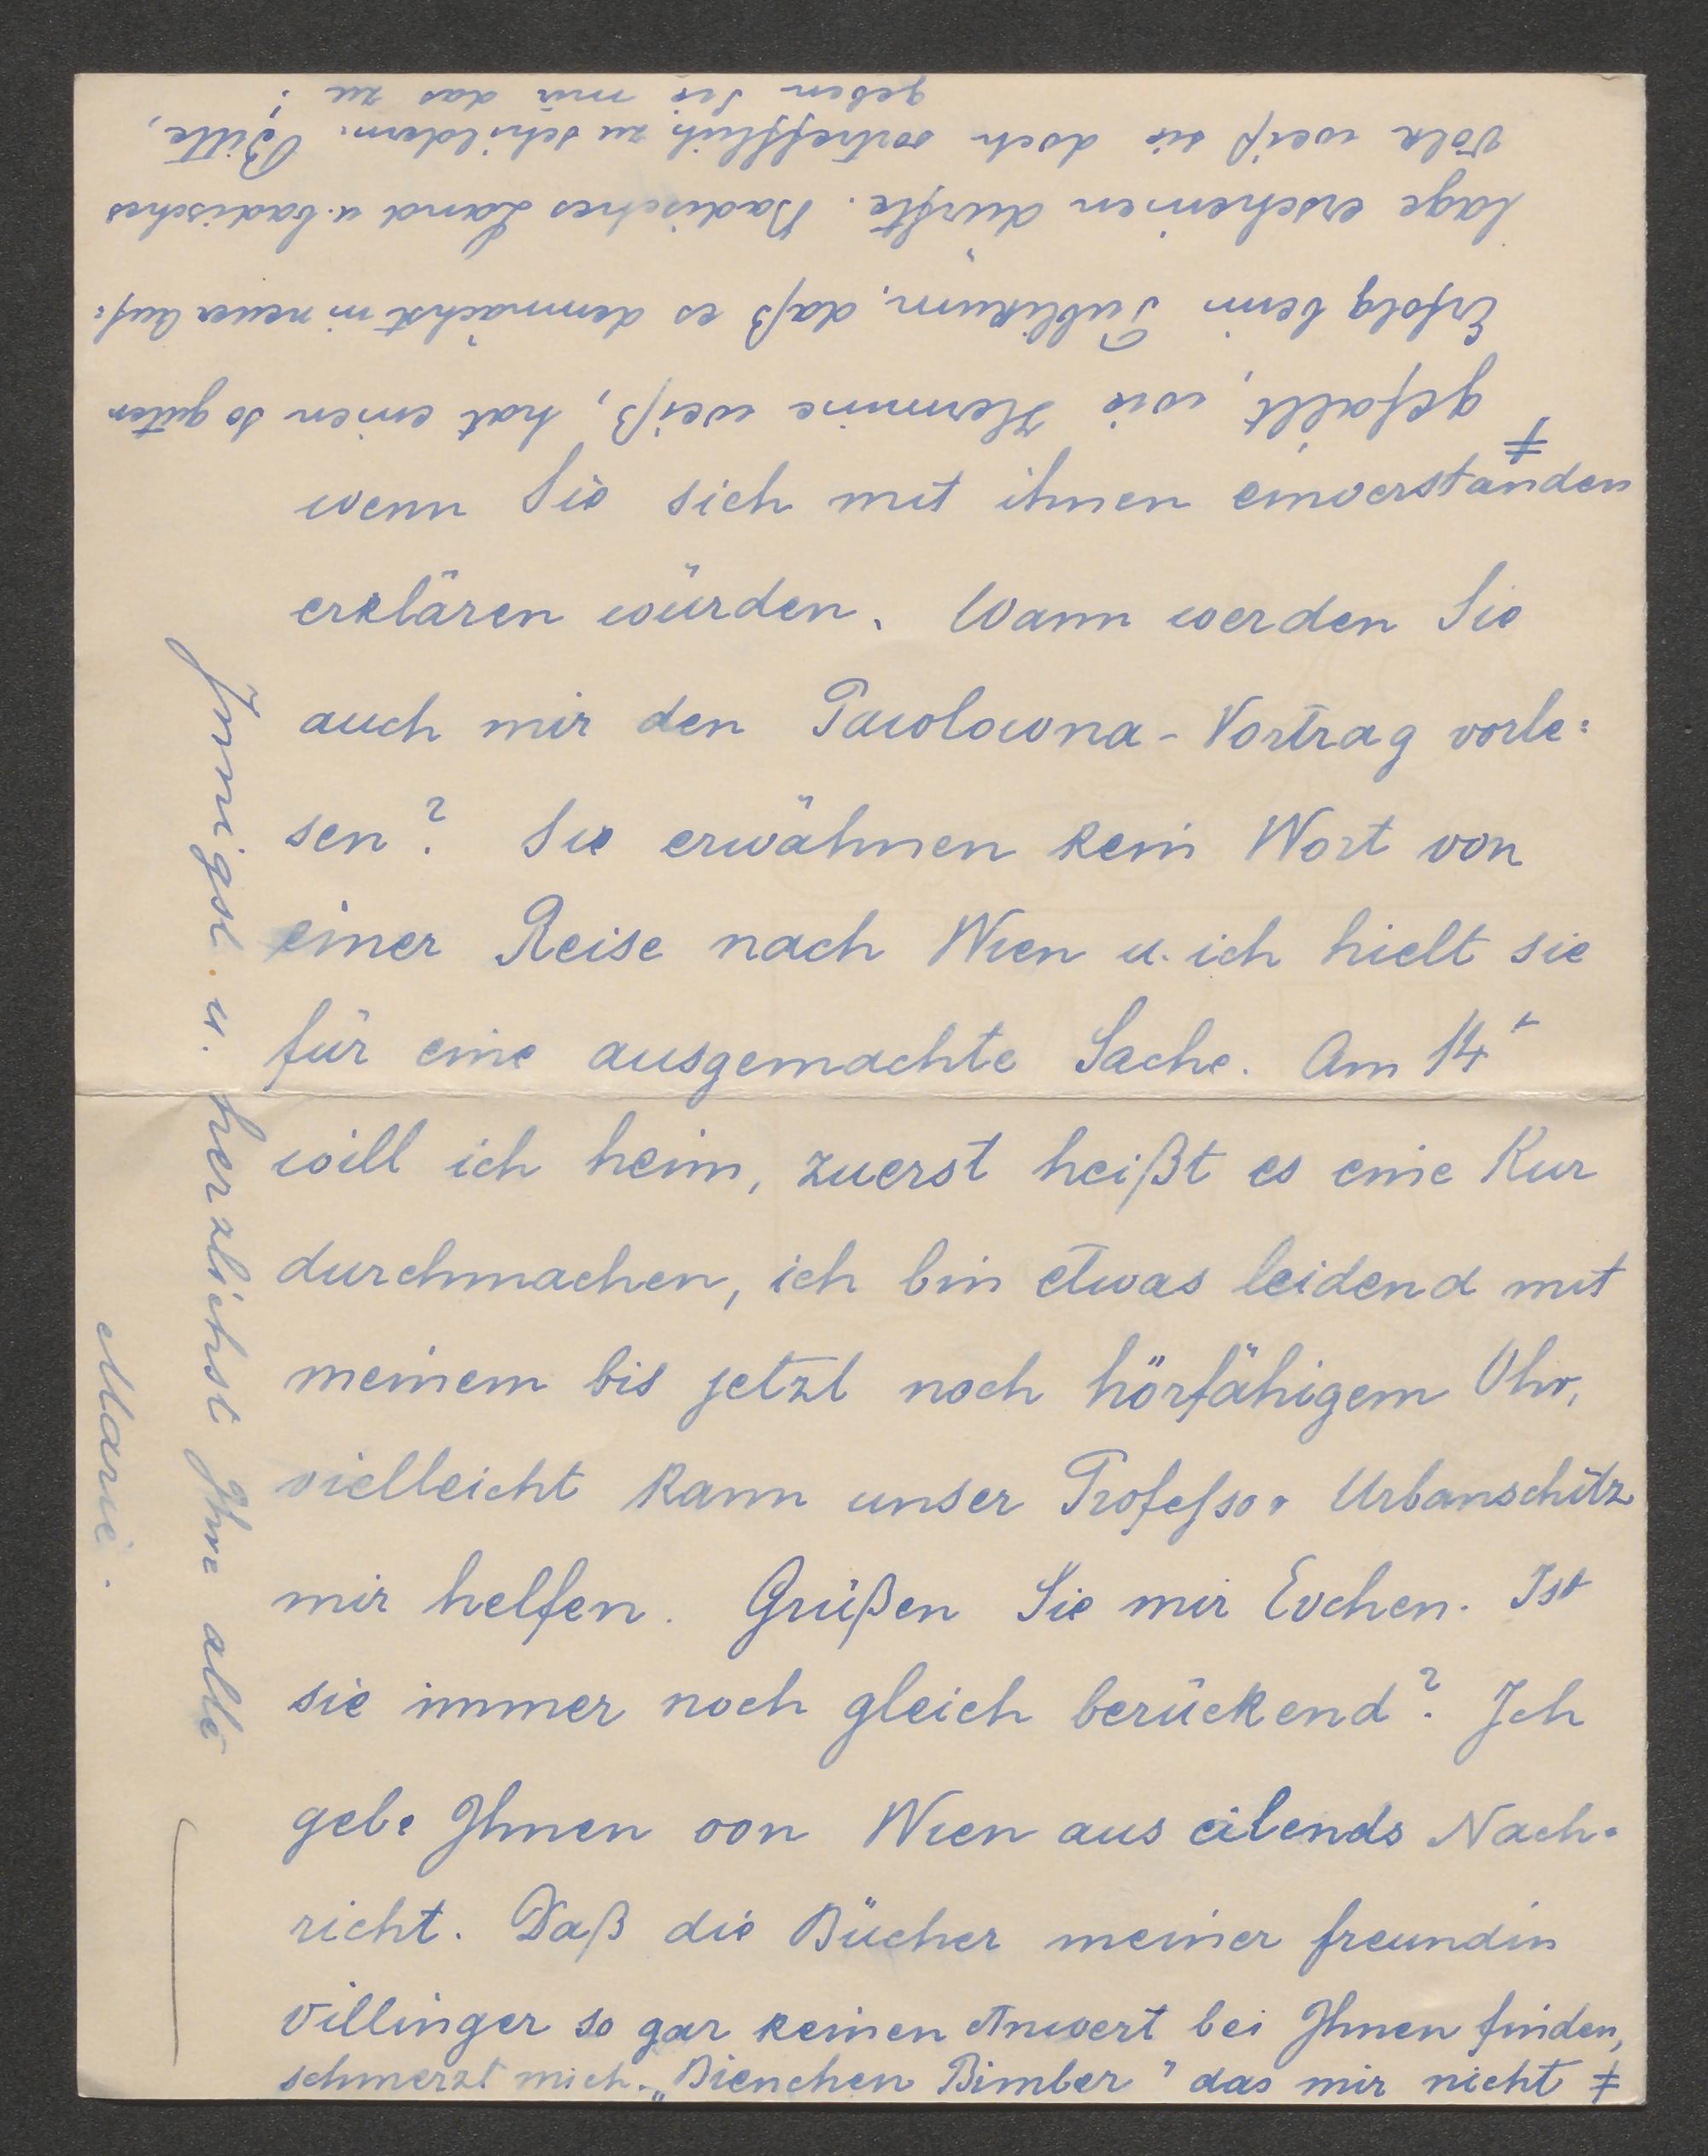 wenn Sie sich mit ihnen einverstanden
erklären würden. Wann werden Sie
auch mir den Pawlowna-Vortrag vorle:
sen? Sie erwähnen kein Wort von
einer Reise nach Wien u. ich hielt sie
für eine ausgemachte Sache. Am 14t
will ich heim, zuerst heißt es eine Kur
durchmachen, ich bin etwas leidend mit
meinem bis jetzt noch hörfähigem Ohr,
vielleicht kann unser Professor Urbanschitz
mir helfen. Grüßen Sie mir Evchen. Ist
sie immer noch gleich berückend? Ich
gebe Ihnen von Wien aus eilends Nach-
richt. Daß die Bücher meiner Freundin
Villinger so gar keinen Anwert bei Ihnen finden,
schmerzt mich. „Bienchen Bimber" das mir nicht ≠
≠
gefällt, wie Hermine weiß, hat einen so guten
Erfolg beim Publikum, daß es demnächst in neuer Auf:
lage erscheinen dürfte. Badisches Land u. badisches
Volk weiß sie doch vortrefflich zu schildern. Bitte,
geben Sie mir das zu!
Innigst u. herzlichst Ihre alte
Marie.